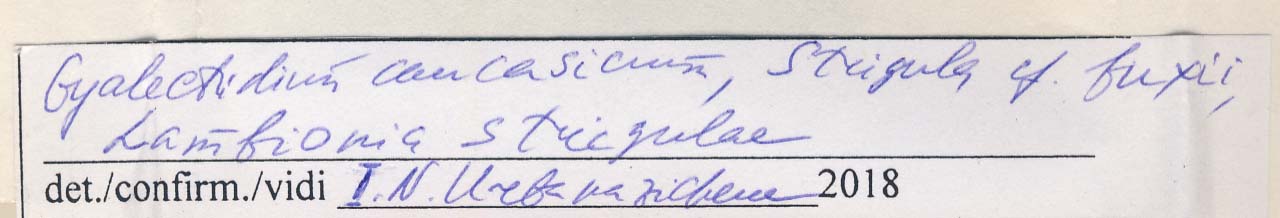 Gyalectidium caucasicum, Strigula cf. buxii,
Lambionia strigulae
det./confirm./vidi I.N. Urbanavichene 2018